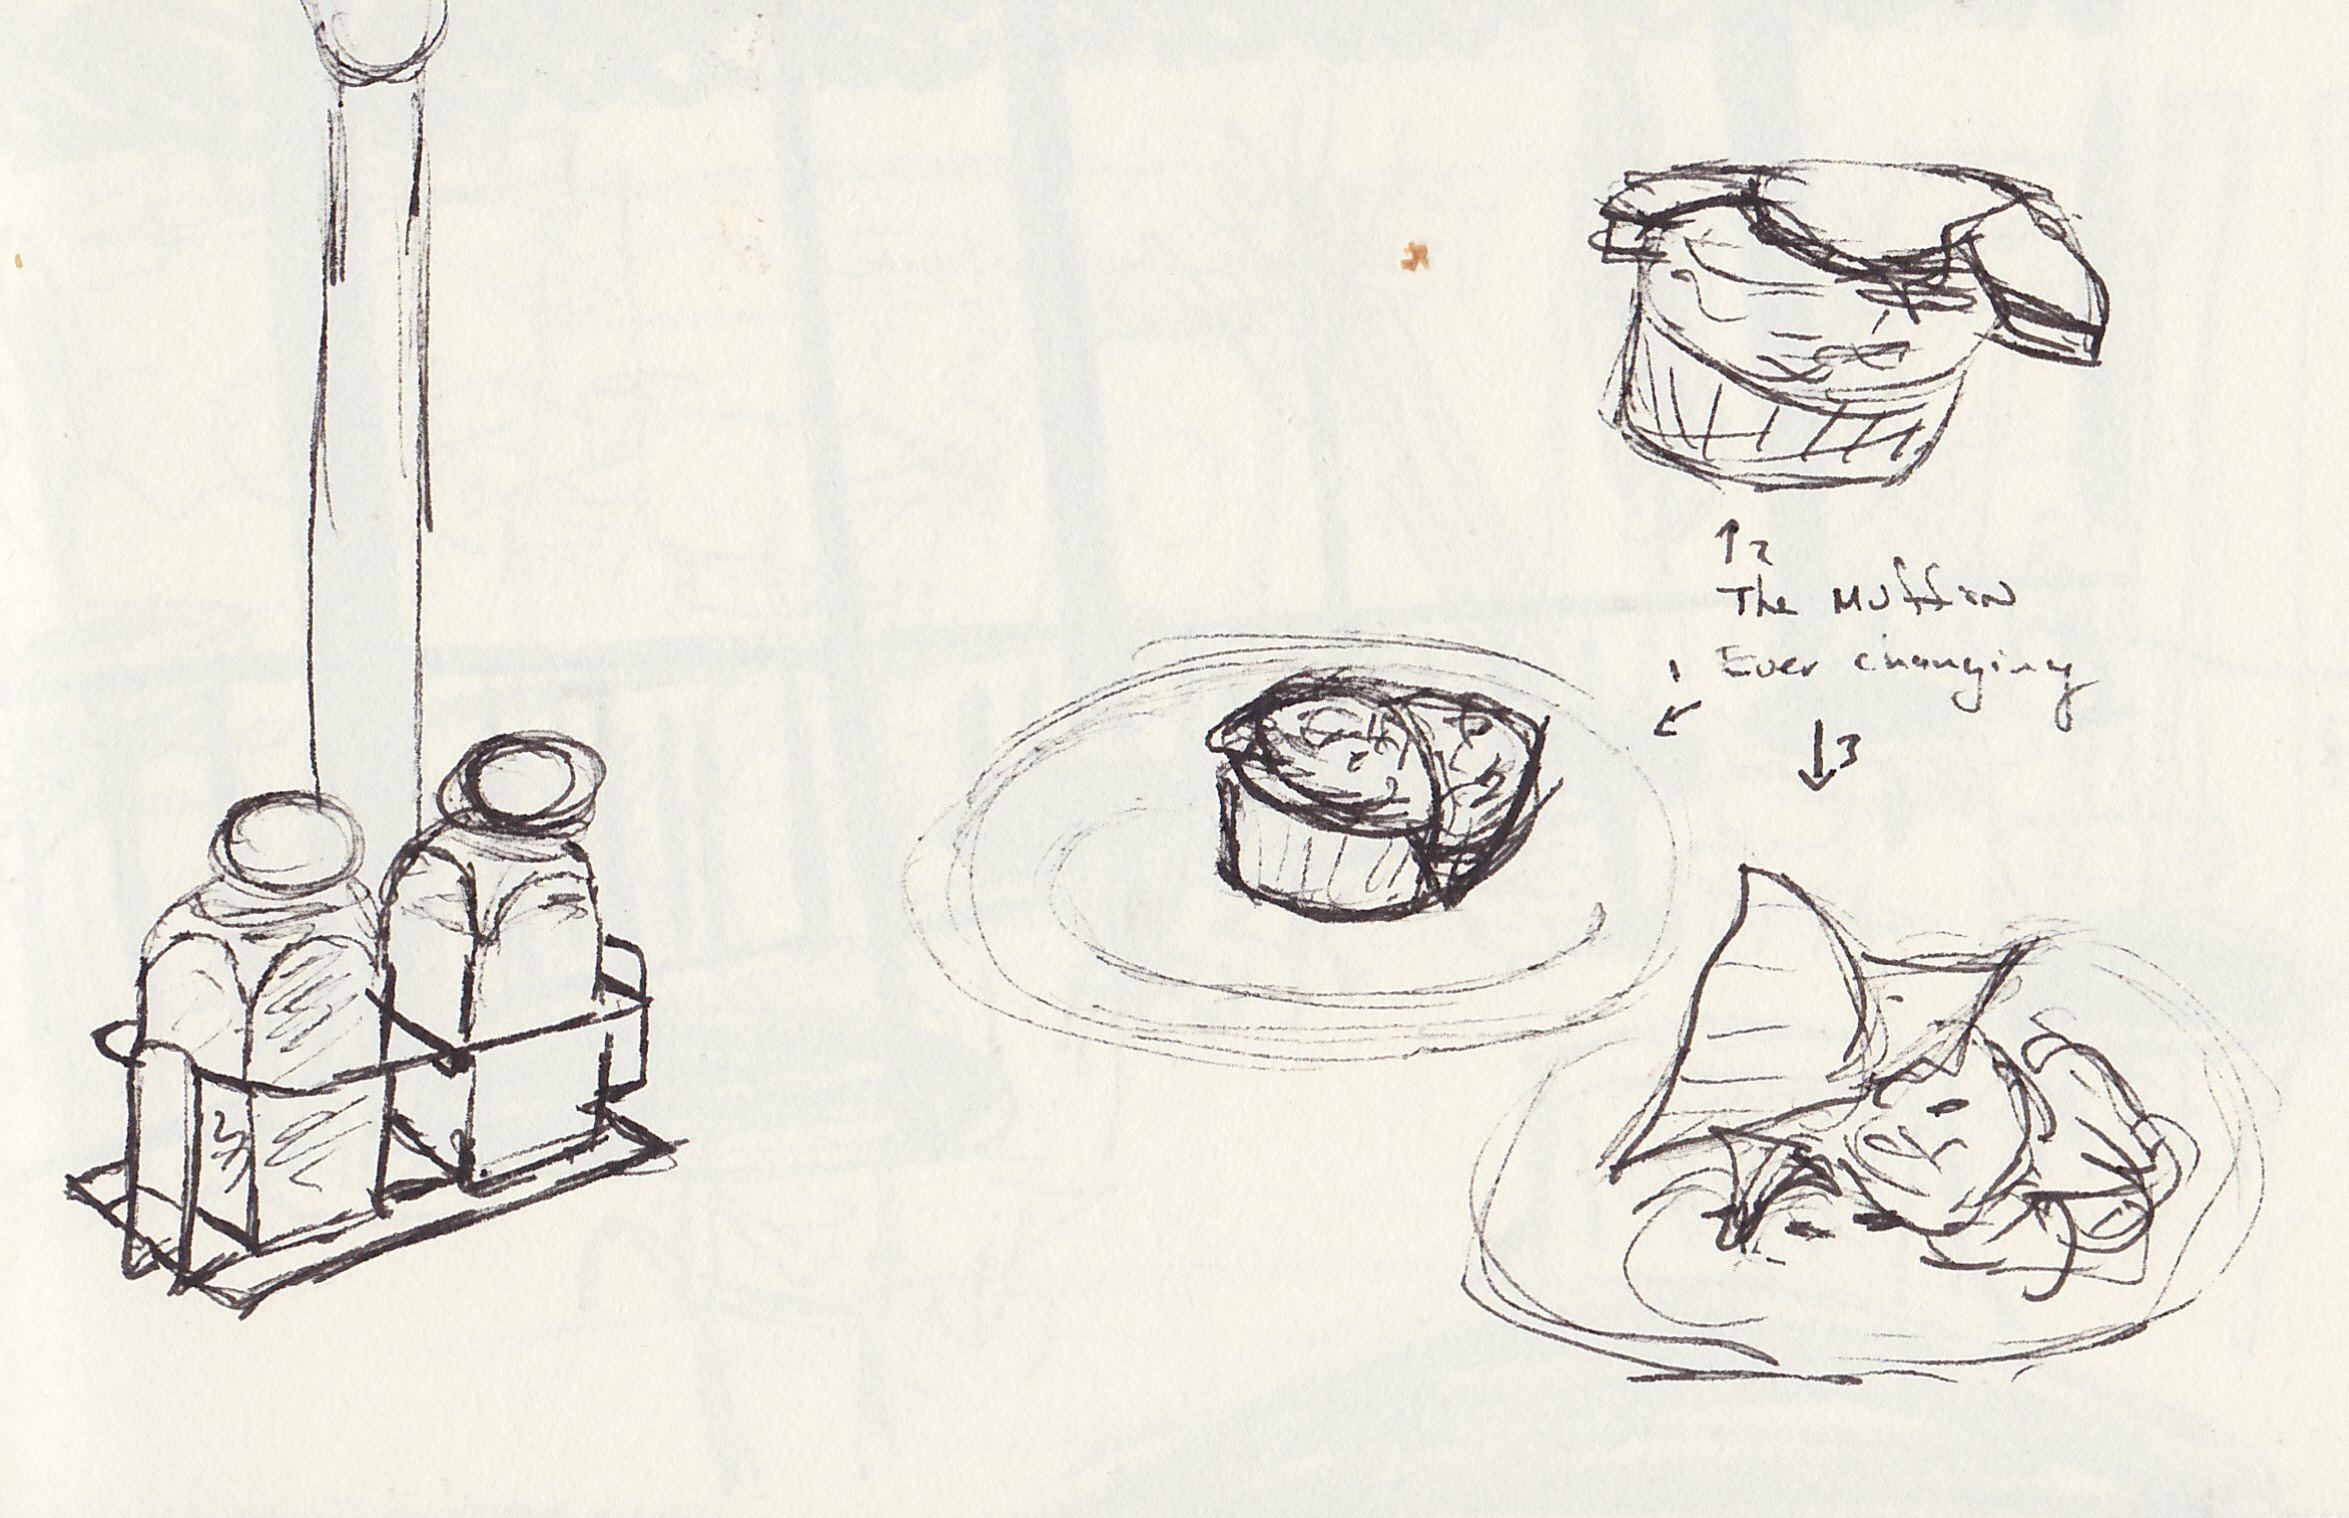 ↑2
The Muffin
1 Ever changing
↙ ↓3